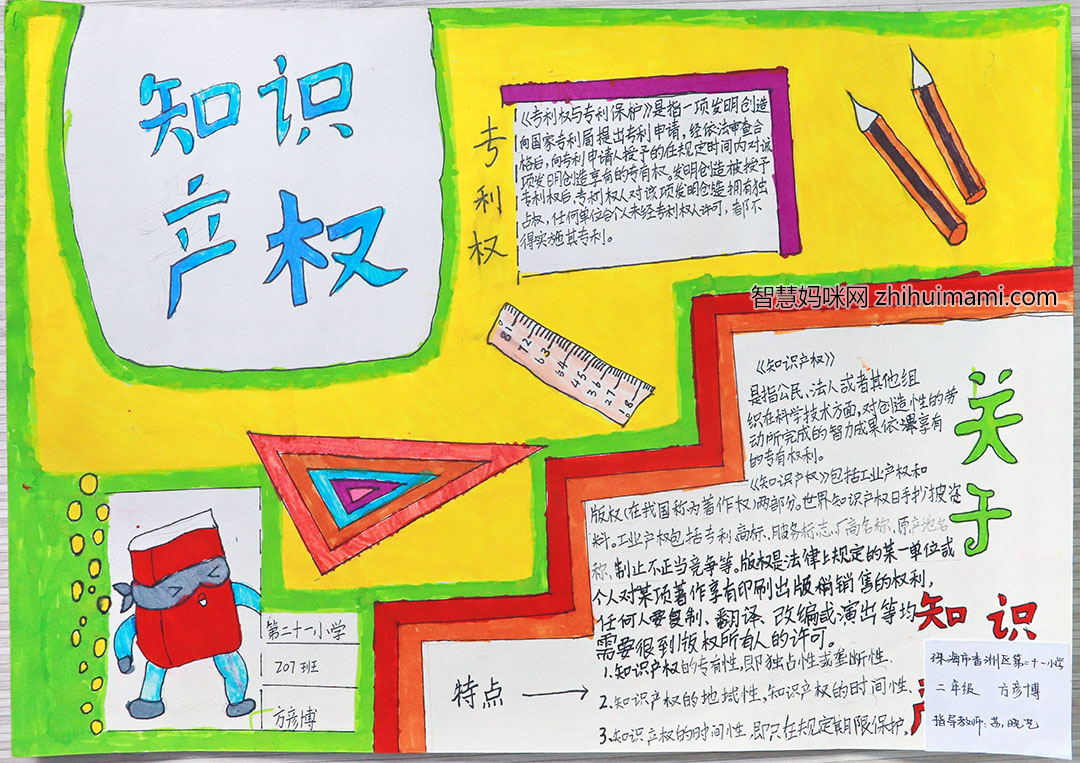 知识
产权
专利权
《专利权与专利保护》是指一项发明创造
向国家专利局提出专利申请,经依法审查合
格后,向专利申请人授予的在规定时间内对该
项发明创造享有的专有权。发明创造被授予
专利权后,专利权人对该项发明创造拥有独
占权,任何单位和个人未经专利权人许可,都不
得实施其专利。
智慧妈咪网 zhihuimami.com
8 72 63 54 45 36 27 18
《知识产权》
是指公民、法人或者其他组
织在科学技术方面,对创造性的劳
动所完成的智力成果依法享有
的专有权利。
《知识产权》包括工业产权和
版权(在我国称为著作权)两部分。世界知识产权日手抄报资
料。工业产权包括专利,商标、服务标志、厂商名称、原产地名
称、制止不正当竞争等。版权是法律上规定的某一单位或
个人对某项著作享有印刷出版和销售的权利,
任何人要复制、翻译、改编或演出等均
需要得到版权所有人的许可。
关于
知识
产
特点
1.知识产权的专有性,即独占性或垄断性.
2.知识产权的地域性,知识产权的时间性、
3.知识产权的时间性,即只在规定期限保护。
第二十一小学
207班
方彦博
珠海市香洲区第二十一小学
二年级 方彦博
指导教师:苏晓